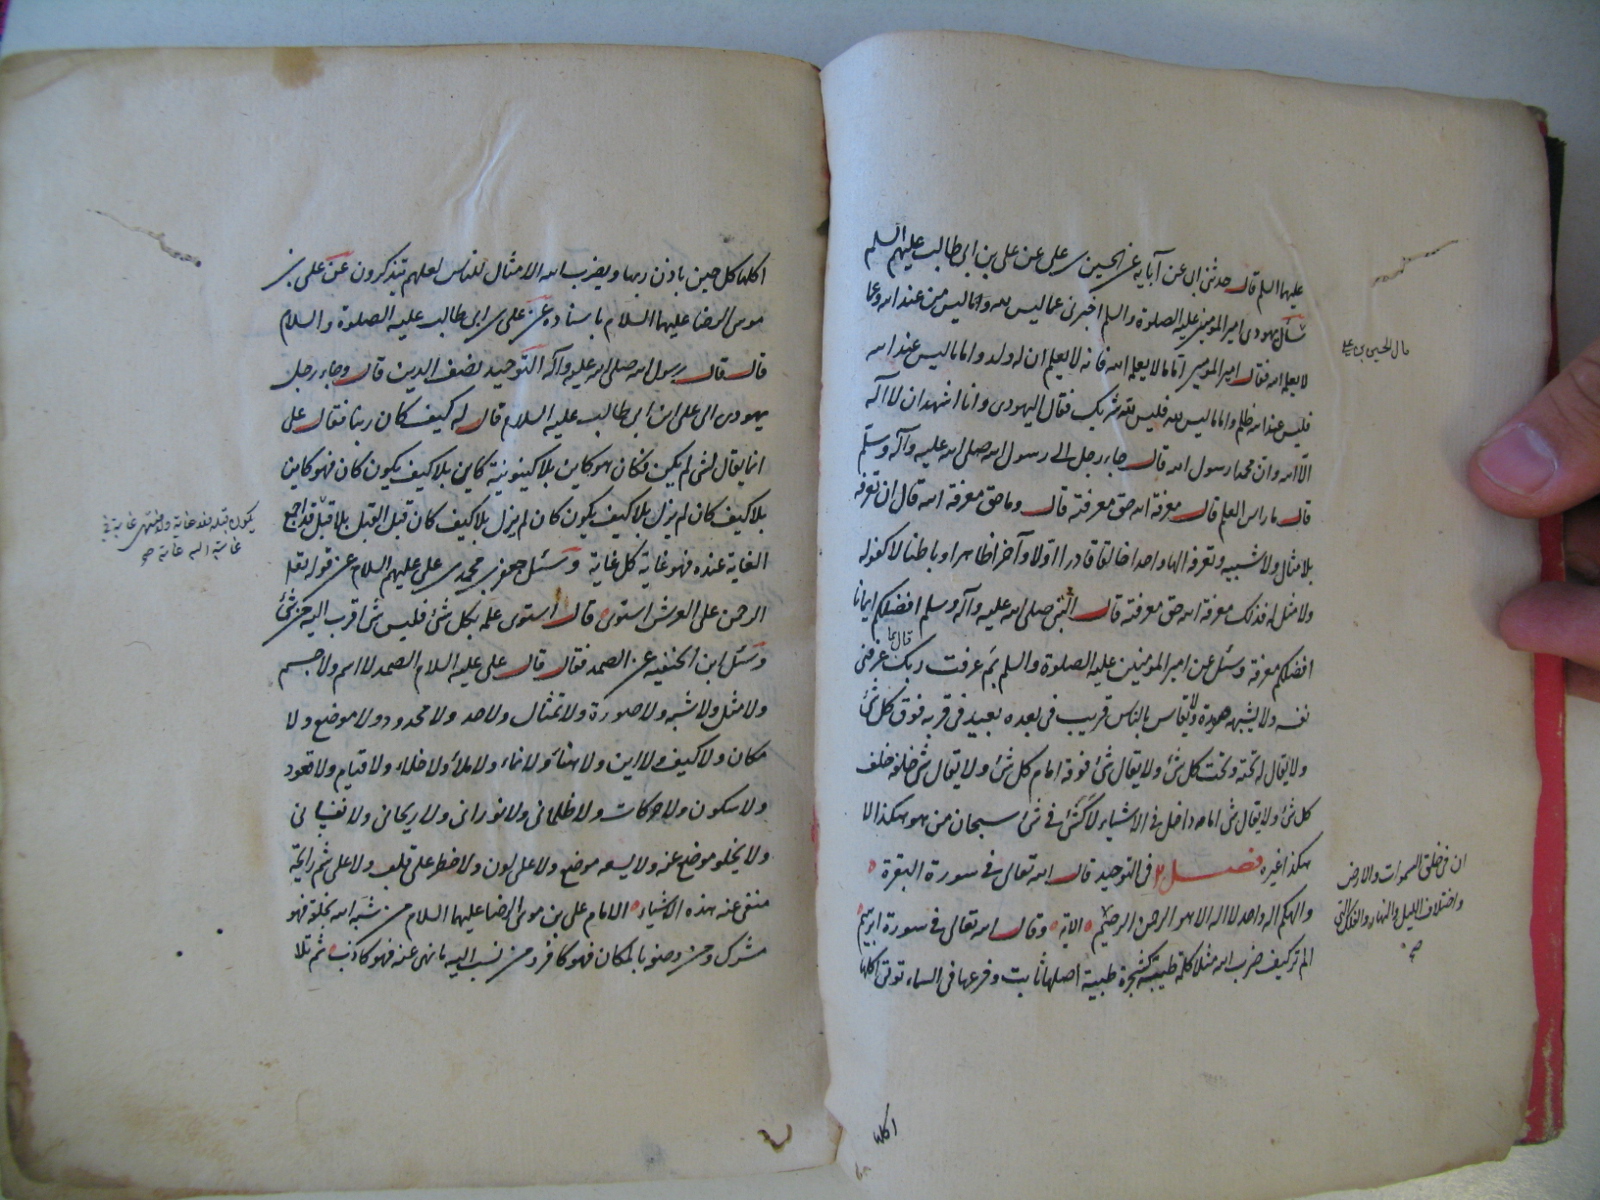 عليهما السلم قال حدثني ابي عن آبايه عن الحسين بن علي عن علي بن ابي طالب عليهم السلم
سأل يهودي امير المومنين عليه الصلوة والسلم اخبرني عما ليس لله وعما ليس من عند الله وعما
لا يعلم الله فقال امير المومنين اما ما لا يعلم الله فانه لا يعلم ان له ولد واما ما ليس عند الله
فليس عند الله ظلم واما ما ليس لله فليس لله شريك فقال اليهودي وانا اشهد ان لا اله
الا الله وان محمدا رسول الله قال جاء رجل الى رسول الله صلى الله عليه وآله وسلم
قال ما راس العلم قال معرفة الله حق معرفته قال وما حق معرفة الله قال ان تعرفه
بلا مثال ولا شبيه وتعرفه الها واحدا خالقا قادرا اولا وآخرا ظاهرا وباطنا لا كفو له
ولا مثل له فذلك معرفة الله حق معرفته قال النبي صلى الله عليه وآله وسلم افضلكم ايمانا
افضلكم معرفة وسئل عن امير المومنين عليه الصلوة والسلم بم عرفت ربك قال بما عرفني
نفسه ولا يشبهه صورة ولا يقاس بالناس قريب في بعده بعيد في قربه فوق كل شئ
ولا يقال له تحته وتحت كل شئ ولا يقال شئ فوقه امام كل شئ ولا يقال شئ خلفه خلف
كل شئ ولا يقال شئ امامه داخل في الاشياء لا كشئ في شئ سبحان من هو هكذا لا
هكذا غيره فصل ٢ في التوحيد قال الله تعالى في سورة البقرة
والهكم اله واحد لا اله الا هو الرحمن الرحيم الاية وقال الله تعالى في سورة ابرهيم
الم تر كيف ضرب الله مثلا كلمة طيبة كشجرة طيبة اصلها ثابت وفرعها في السماء توتي اكلها
قال الحسين بن علي
ان في خلق السموات والارض
واختلاف الليل والنهار والفلك التي
صح
اكلها
اكلها كل حين باذن ربها ويضرب الله الامثال للناس لعلهم يتذكرون عن علي بن
موسى الرضا عليهما السلام باسناده عن علي بن ابي طالب عليه الصلوة والسلام
قال قال رسول الله صلى الله عليه وآله التوحيد نصف الدين قال وجاء رجل
يهودي الى علي ابن ابي طالب عليه السلام قال له كيف كان ربنا فقال علي
انما يقال لشئ لم يكن فكان هو كاين بلا كينونية كاين بلا كيف يكون كان فهو كاين
بلا كيف كان لم يزل بلا كيف يكون كان لم يزل بلا كيف كان قبل القبل بلا قبل قد اجمع
الغاية عنده فهو غاية كل غاية وسئل جعفر بن محمد بن علي عليهم السلام عن قوله تعالى
الرحمن على العرش استوى قال استوى علمه بكل شئ فليس شئ اقرب اليه من شئ
وسئل ابن الحنفيه عن الصمد فقال قال علي عليه السلام الصمد لا اسم ولا جسم
ولا مثل ولا شبه ولا صورة ولا تمثال ولا حد ولا محدود ولا موضع ولا
مكان ولا كيف ولا اين ولا هنا ولا ملأ ولا خلاء ولا قيام ولا قعود
ولا سكون ولا حركات ولا ظلماني ولا نوراني ولا ريحاني ولا نفساني
ولا يخلو موضع عنه ولا يسعه موضع ولا على لون ولا خطر على قلب ولا على شم رايحة
منفي عنه هذه الاشياء الامام علي بن موسى الرضا عليهما السلام من شبه الله بخلقه فهو
مشرك ومن وصفه بالمكان فهو كافر ومن نسب اليه ما نهى عنه فهو كاذب ثم تلا
غاية اليه غاية صح